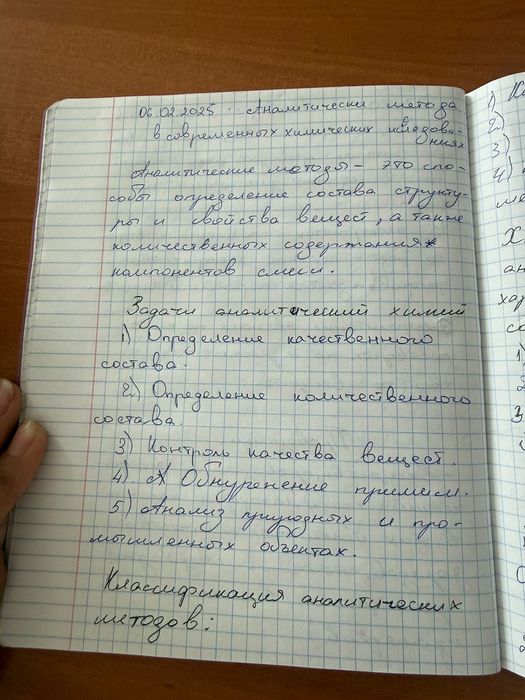 06.02.2025. Аналитически метода
в современных химических исследова-
ниях
Аналитические методы - это спо-
собы определение состава структу-
ры и свойства вещест, а также
количественных содержания
компонентов смеси.
Задачи аналитический химий
1) Определение качественного
состава.
2) Определение количественного
состава.
3) Контроль качества вещест.
4) Обнуренение примим.
5) Анализ природных и про-
мышленных объектах.
Классификация аналитических
методов:
1)
2)
3)
4)